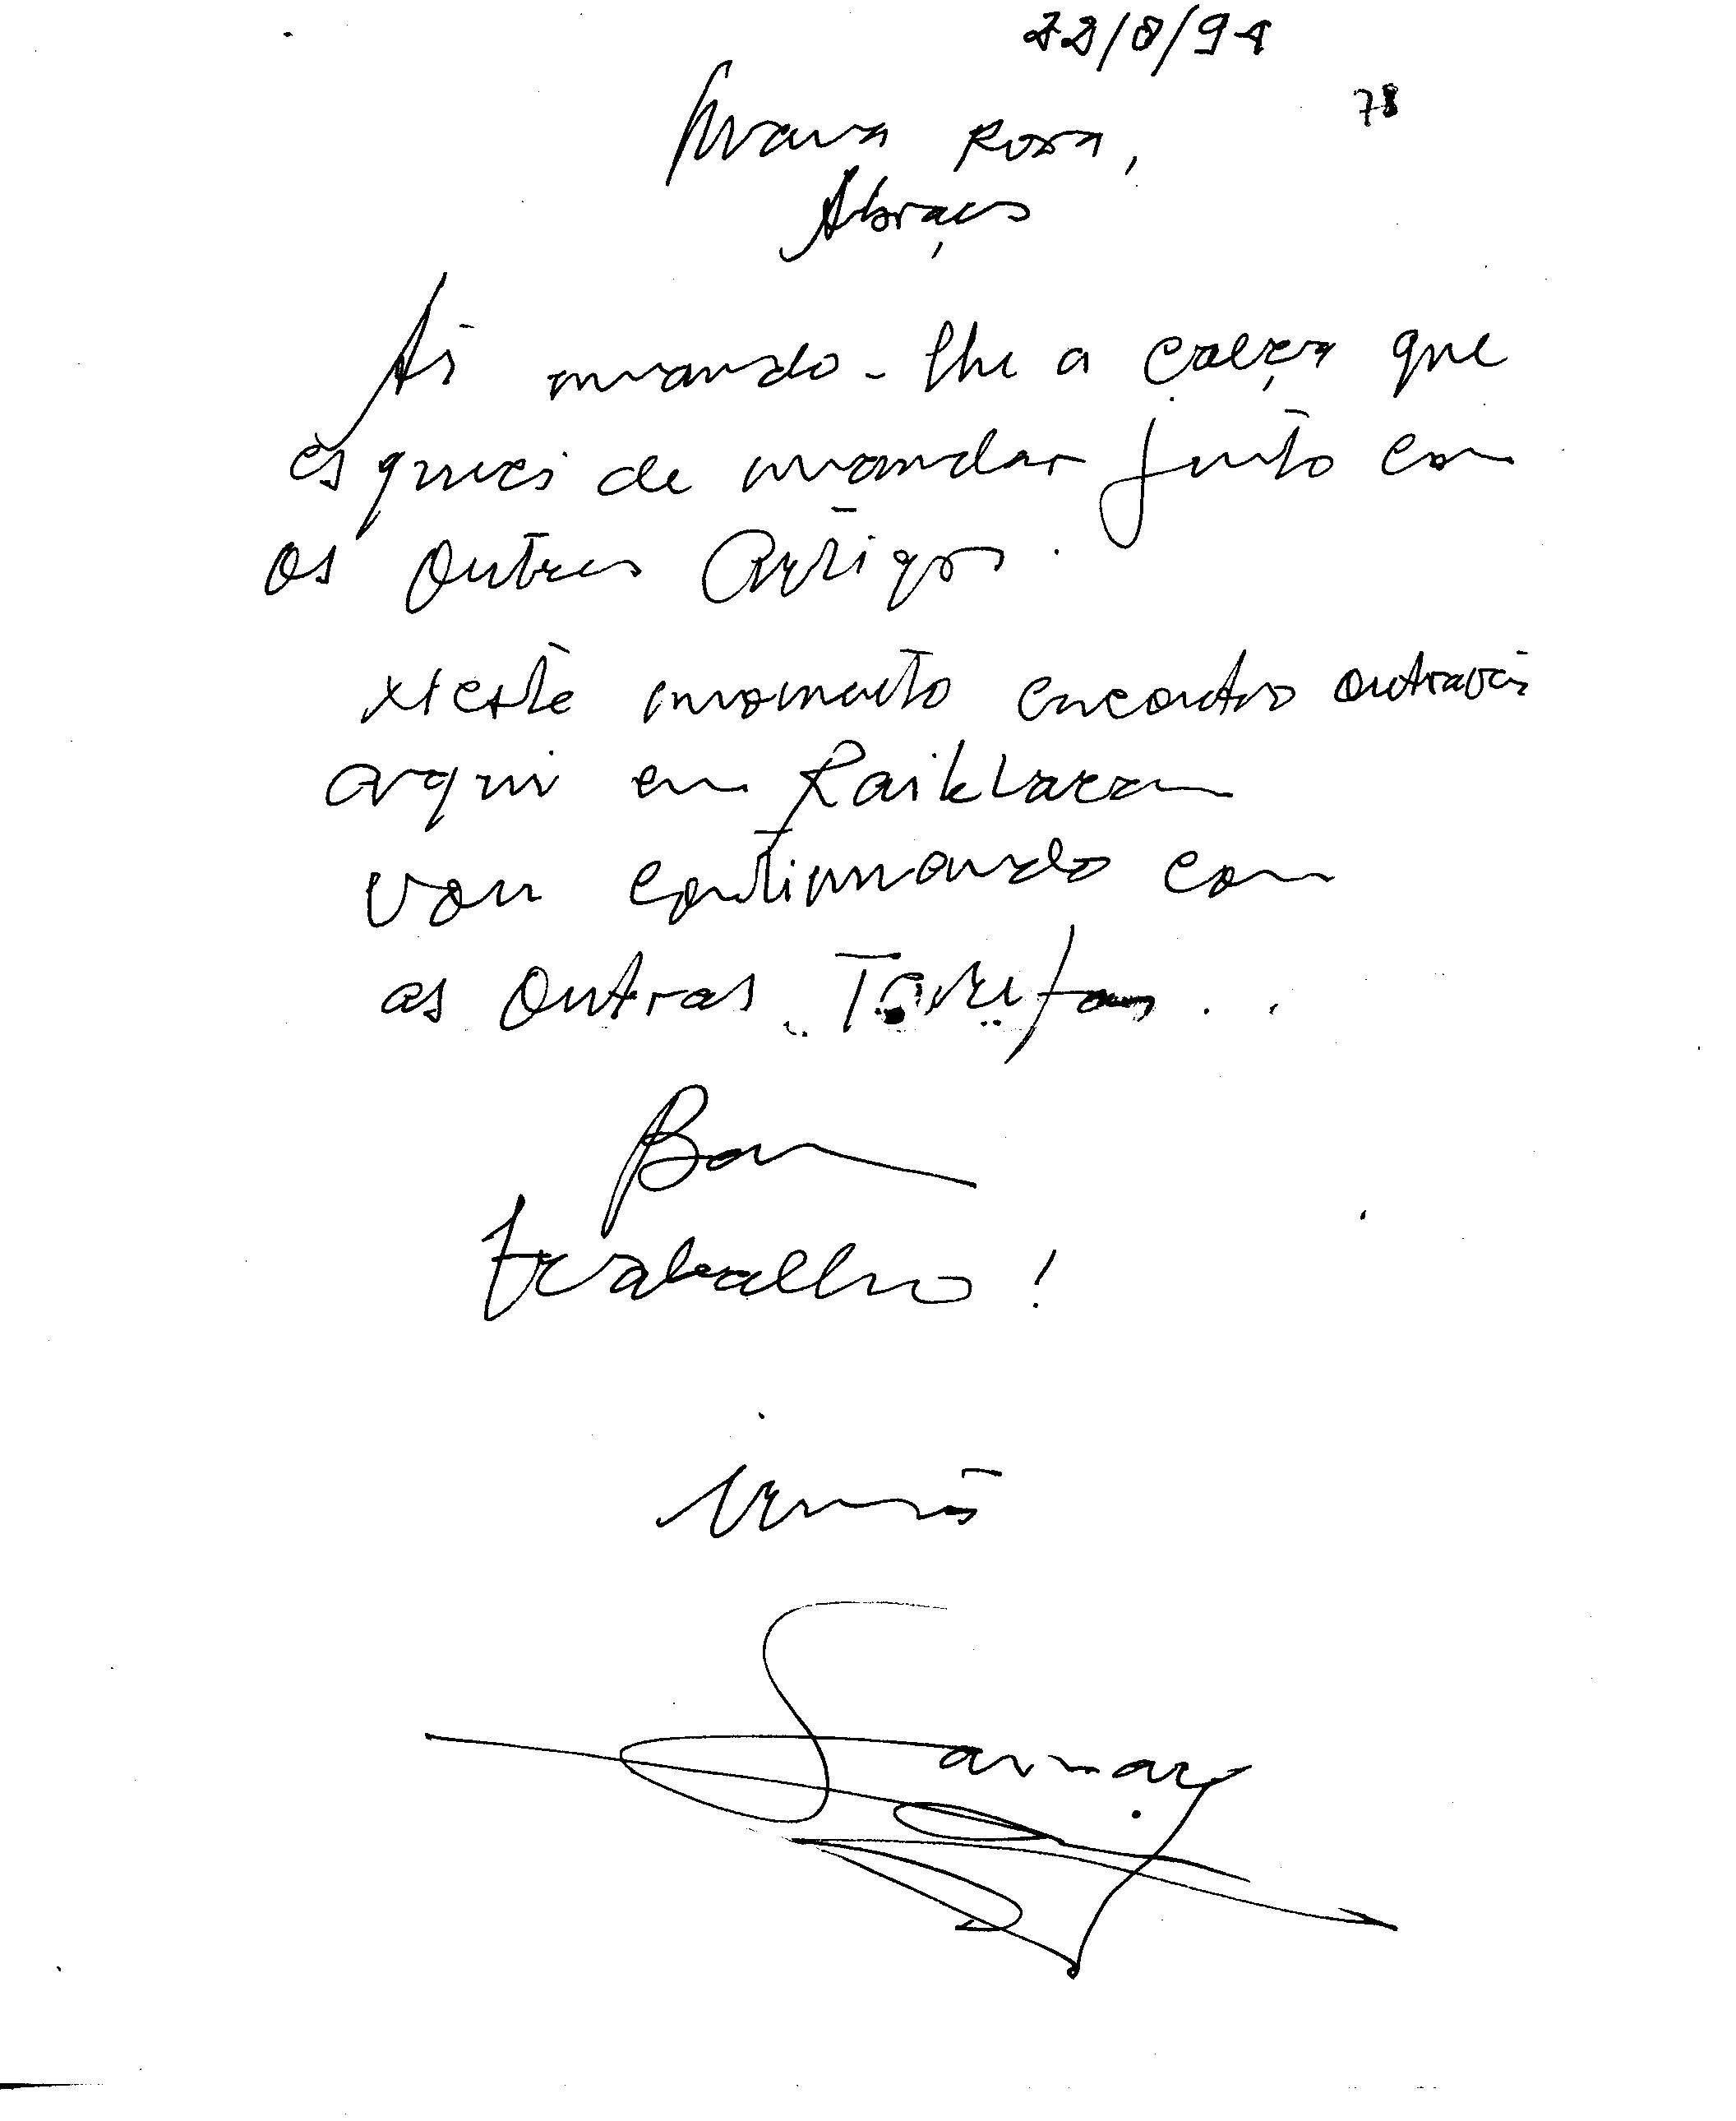 22/8/94
78
Mara Rosa,
Abraços
Aí mando-lhe a calça que
esqueci de mandar junto com
os outros artigos.
Neste momento encontro outra vez
aqui em
vou continuando com
as outras Tarefas..
Bom
trabalho!